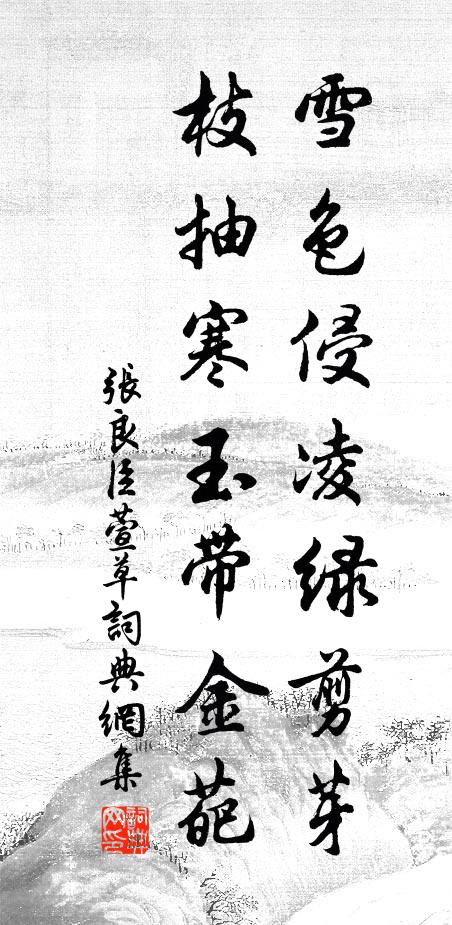 雪色侵凌绿剪芽
枝抽寒玉带金葩
張良臣萱草詞典網集
詞典网印